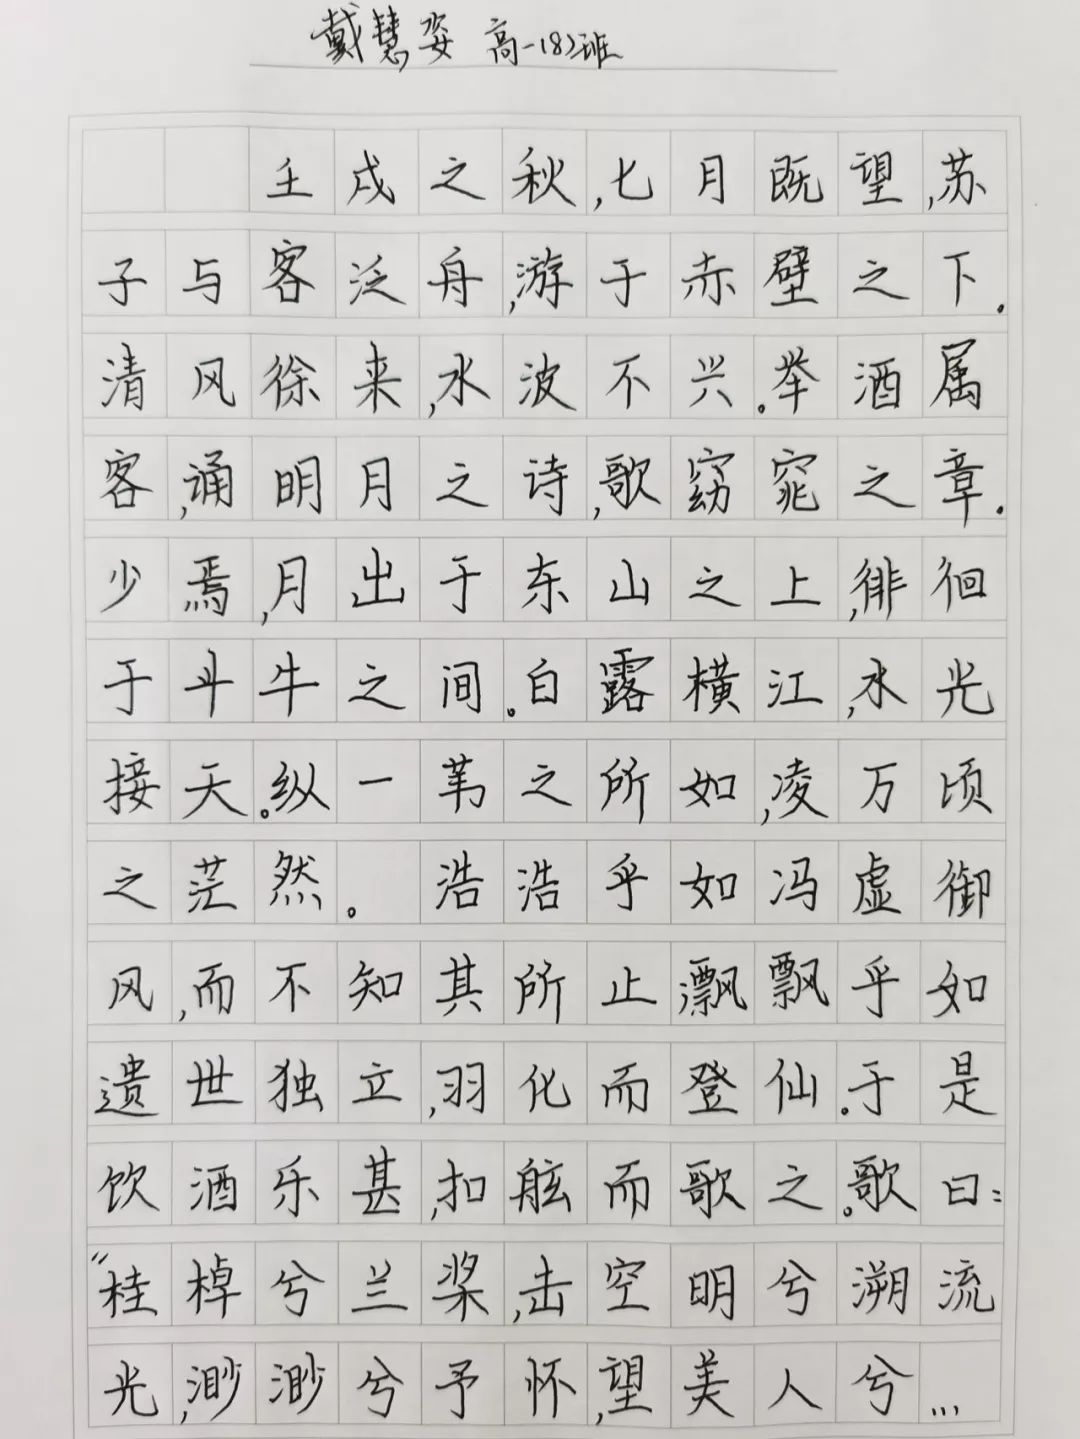 戴慧姿 高一(8)班
壬戌之秋,七月既望,苏
子与客泛舟,游于赤壁之下.
清风徐来,水波不兴。举酒属
客,诵明月之诗,歌窈窕之章.
少焉,月出于东山之上,徘徊
于斗牛之间。白露横江,水光
接天。纵一苇之所如,凌万顷
之茫然。 浩浩乎如冯虚御
风,而不知其所止飘飘乎如
遗世独立,羽化而登仙。于是
饮酒乐甚,扣舷而歌之。歌曰:
“桂棹兮兰桨,击空明兮溯流
光,渺渺兮予怀,望美人兮...